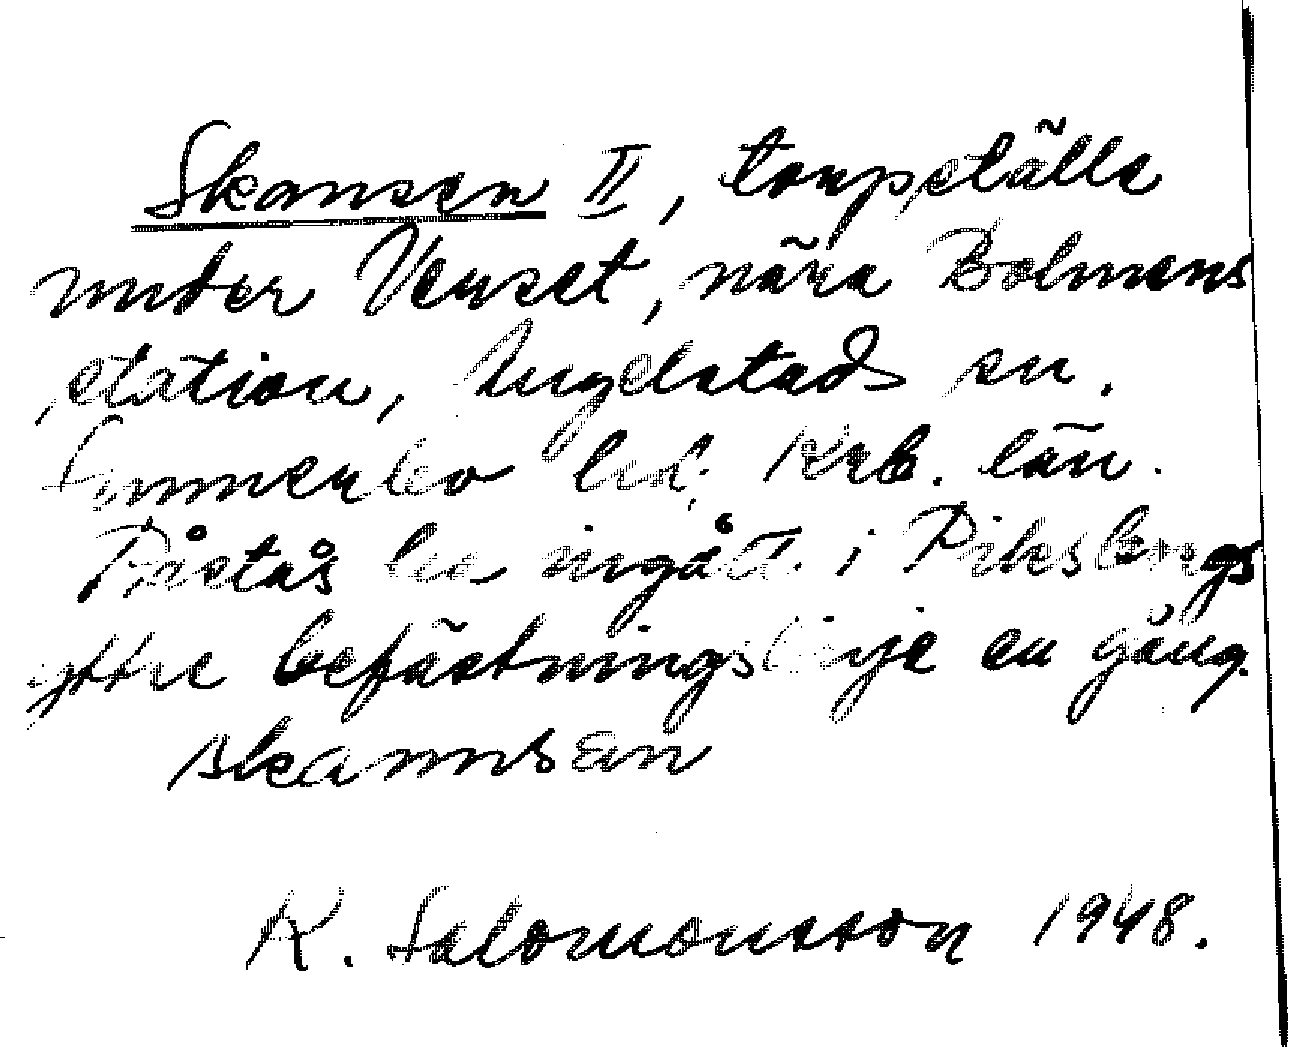 Skansen II, torpställe
under Venset, nära Bolmens
station, Angelstads sn.
Sunnerbo hd. Krb. län.
Påstås ha ingått i Piksborgs
yttre befästningslinje en gång.
skannsen
K. Salomonsson 1948.